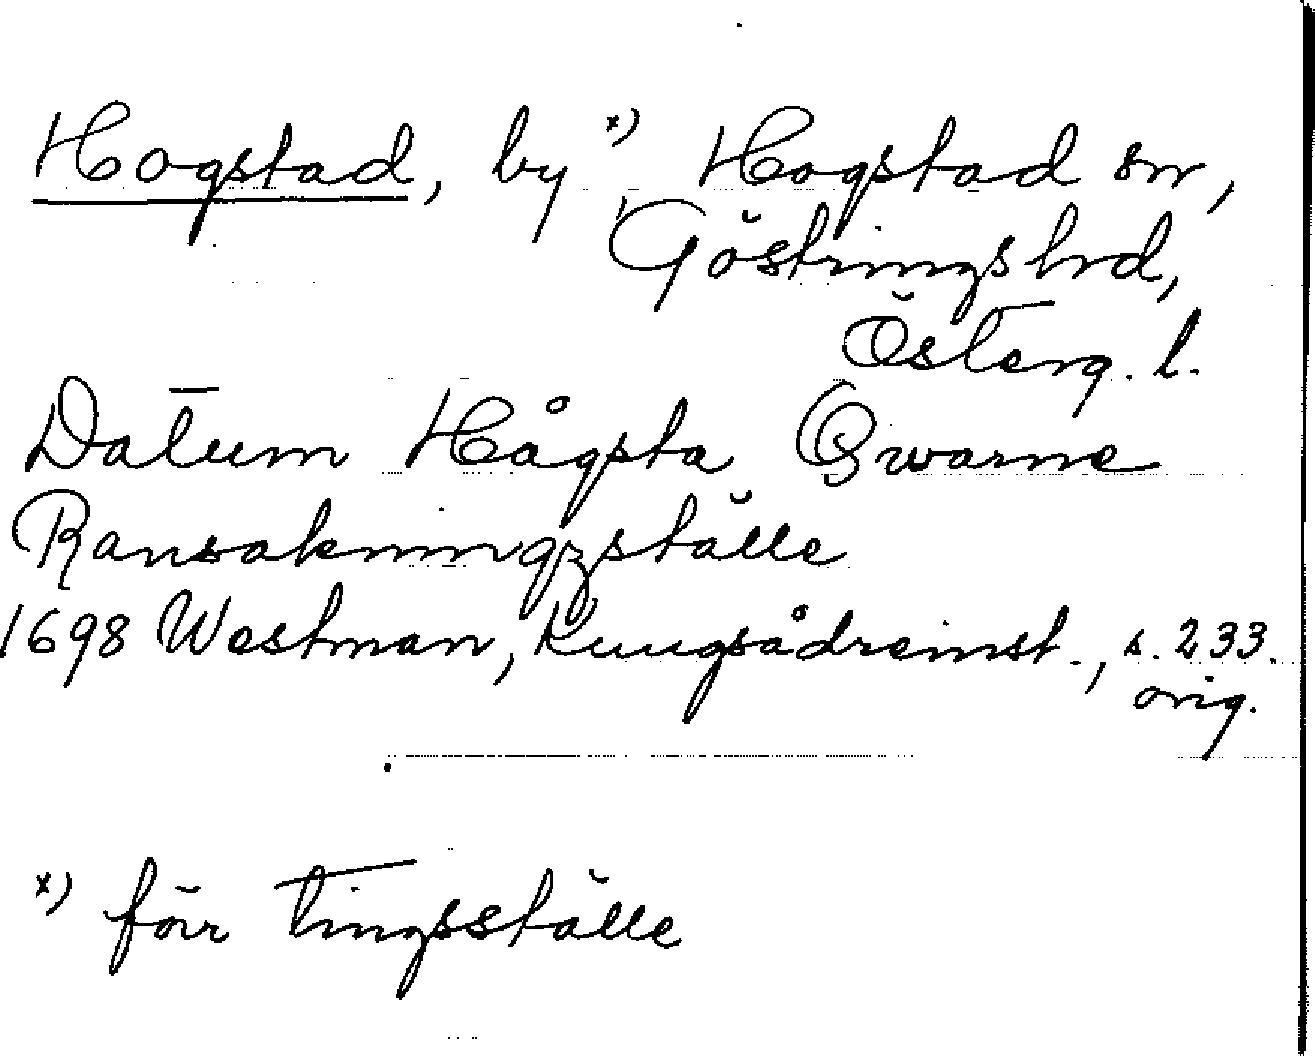 Hogstad, by x) Hogstad sn,
Göstringshrd,
Österg. l.
Datum Hågsta Qwarne
Ransakningzställe
1698 Westman, Kungsådreinst., s. 233.
orig.
x) förr tingsställe